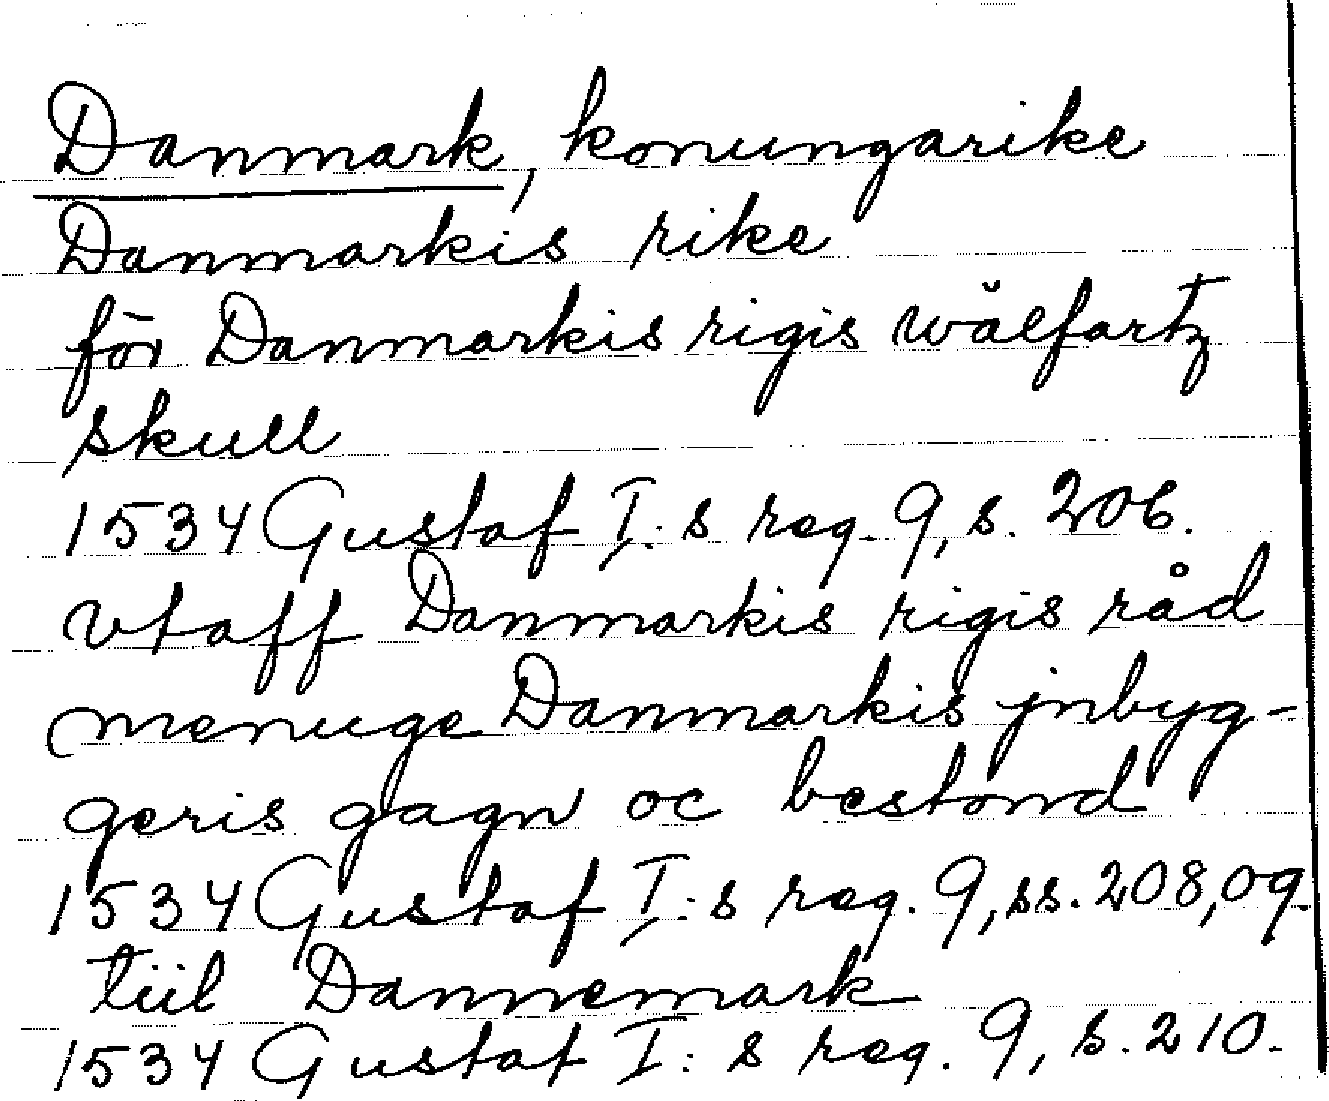 Danmark, konungarike
Danmarkis rike
för Danmarkis rigis wălfartz
skull
1534 Gustaf I:s reg. 9, s. 206.
vtaff Danmarkis rigis råd
menuge Danmarkis jnbyg-
geris gagn oc bestond
1534 Gustaf I:s reg. 9, ss. 208, 09.
tiil Dannemark
1534 Gustaf I:s reg. 9, s. 210.